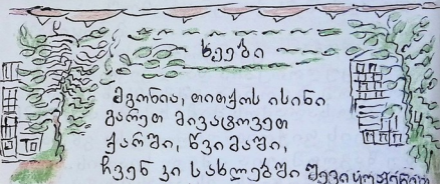 ხეები
მგონია, თითქოს ისინი
გარეთ მივატოვეთ
ქარში, წვიმაში,
ჩვენ კი სახლებში